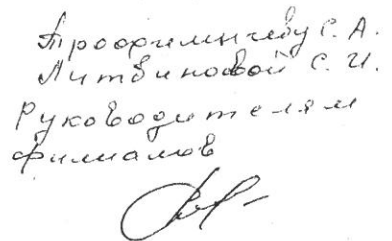 Трофимичеву С. А.
Литвиновой С. И.
Руководителям
филиалов